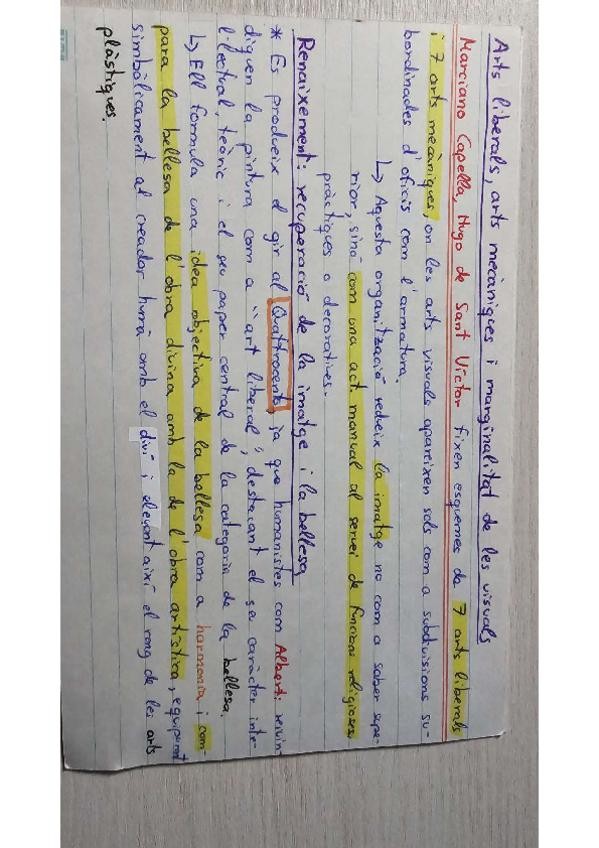 Arts liberals, arts mecàniques i marginalitat de les visuals
Marciano Capella, Hugo de Sant Víctor fixen esquemes de 7 arts liberals
i 7 arts mecàniques, on les arts visuals apareixen sols com a subdivisions su-
bordinades d'oficis com l'armatura.
↳ Aquesta organització redueix la imatge no com a saber supe-
rior, sinó com una act. manual al servei de funcions religioses,
pràctiques o decoratives.
Renaixement: recuperació de la imatge i la bellesa
* Es produeix el gir al Quattrocento, ja que humanistes com Alberti reivin-
diquen la pintura com a "art liberal", destacant el seu caràcter inte-
l·lectual, teòric i el seu paper central de la categoria de la bellesa.
↳ Ell formula una idea objectiva de la bellesa com a harmonia i com-
para la bellesa de l'obra divina amb la de l'obra artística, equiparant
simbòlicament al creador humà amb el diví i elevant així el rang de les arts
plàstiques.